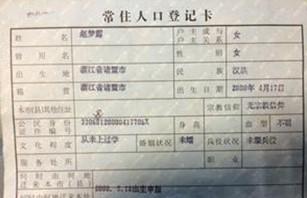 常住人口登记卡
姓名 赵梦露 户主或与户主关系 女
曾用名 性别 女
出生地 浙江省诸暨市 民族 汉族
籍贯 浙江省诸暨市 出生日期 2000年4月17日
本市(县)其他住址 宗教信仰 无宗教信仰
公民身份证件编号 身高 血型 不明
文化程度 从未上过学 婚姻状况 未婚 兵役状况 未服兵役
服务处所 职业
何时由何地迁来本市(县)